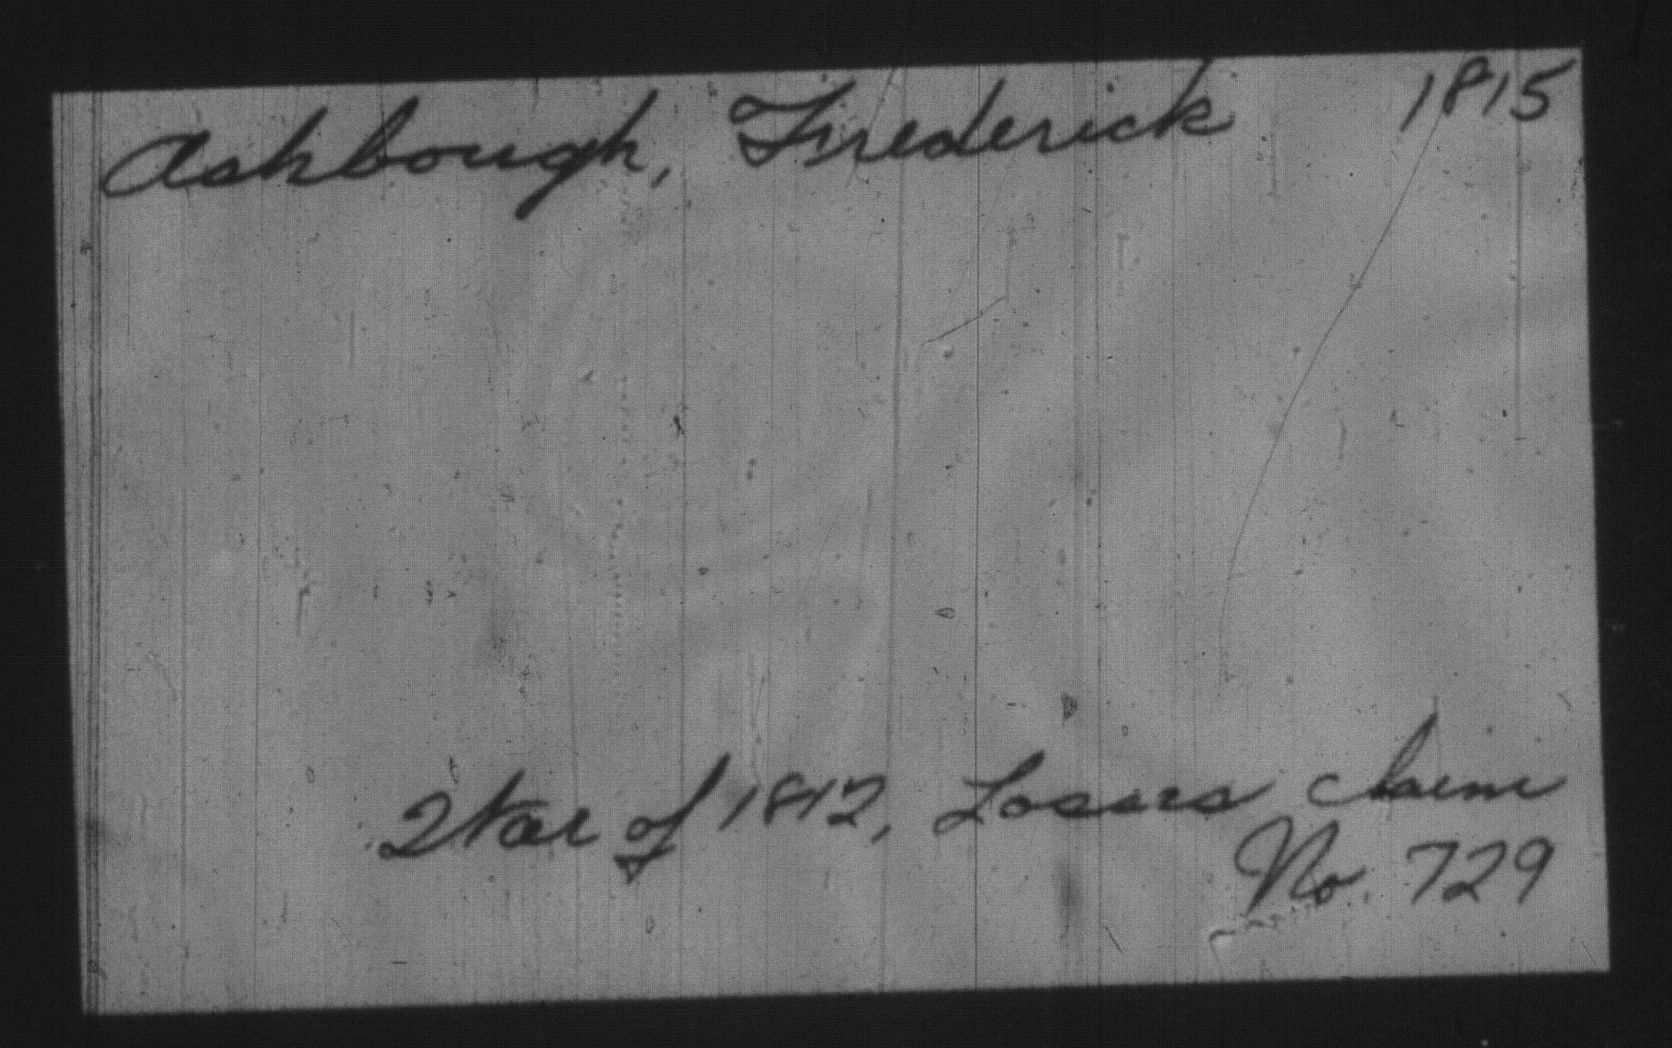 Ashbough, Frederick 1815
War of 1812, Losses claim
No. 729